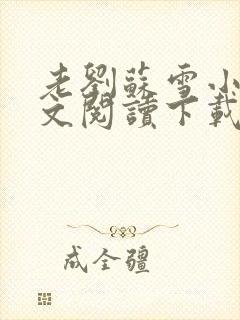 老劉蘇雪小
文閱讀下載
成全疆